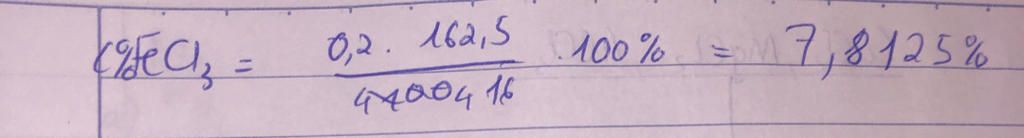 C%FeCl₃ = \frac{0,2 . 162,5}{416} . 100% = 7,8125%